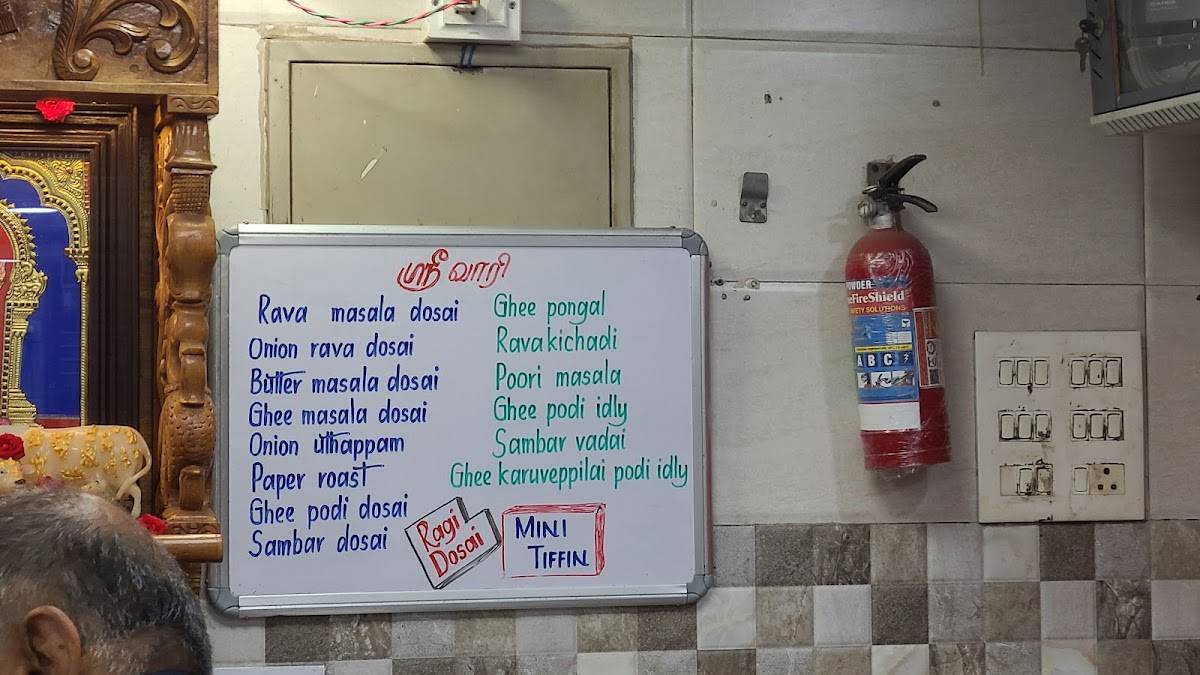 ஸ்ரீ வாரி
Rava masala dosai
Onion rava dosai
Butter masala dosai
Ghee masala dosai
Onion uthappam
Paper roast
Ghee podi dosai
Sambar dosai
Ghee pongal
Rava kichadi
Poori masala
Ghee podi idly
Sambar vadai
Ghee karuveppilai podi idly
Ragi
Dosai
MINI
TIFFIN
POWDER
eFireShield
SAFETY SOLUTIONS
A B C